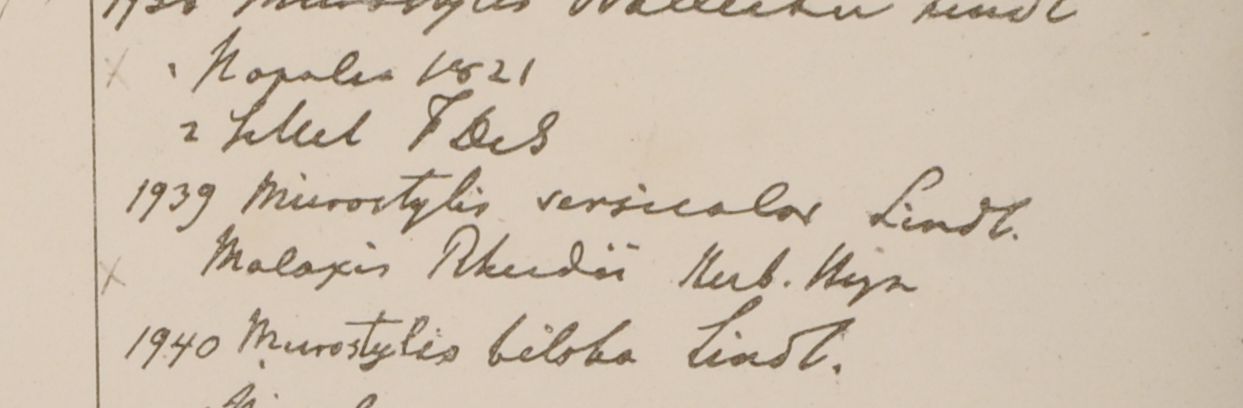 1938 Microstylis Wallichii Lindl
1 Napalia 1821
2 Sillet FDeS
1939 Microstylis versicolor Lindl.
Malaxis Rheedii Herb. Heyn
1940 Microstylis biloba Lindl.